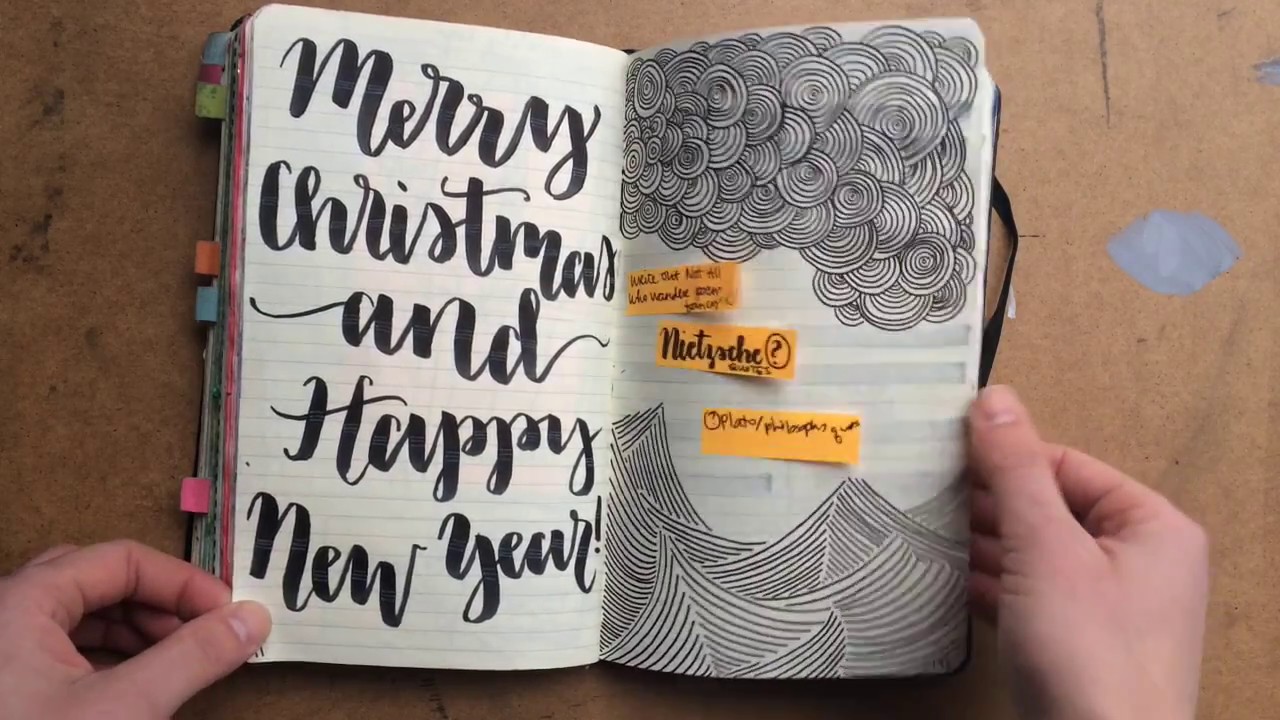 Merry
Christmas
and
Happy
New Year!
Write out Not All
who wander
Nietzsche ?
QUOTES
? Plato/philosophs